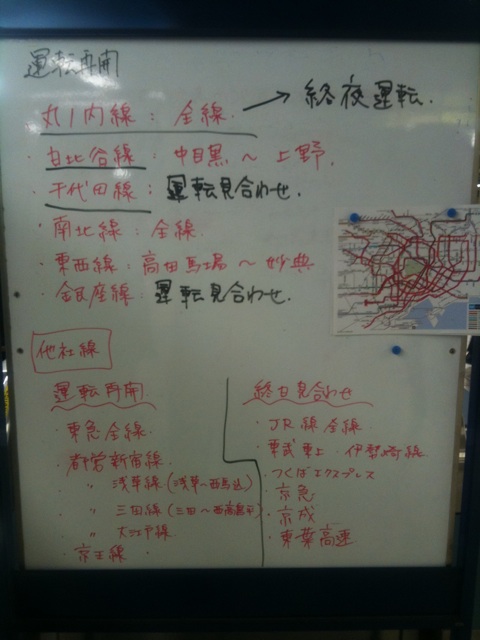 運転再開
丸ノ内線：全線. → 終夜運転.
・日比谷線：中目黒～上野.
・千代田線：運転見合わせ.
・南北線：全線.
・東西線：高田馬場～妙典
・銀座線：運転見合わせ.
他社線
運転再開
・東急全線
・都営新宿線.
・〃 浅草線(浅草～西馬込)
・〃 三田線(三田～西高島平)
・〃 大江戸線
・京王線
終日見合わせ
・JR線全線
・東武東上・伊勢崎線
・つくばエクスプレス
・京急
・京成
・東葉高速